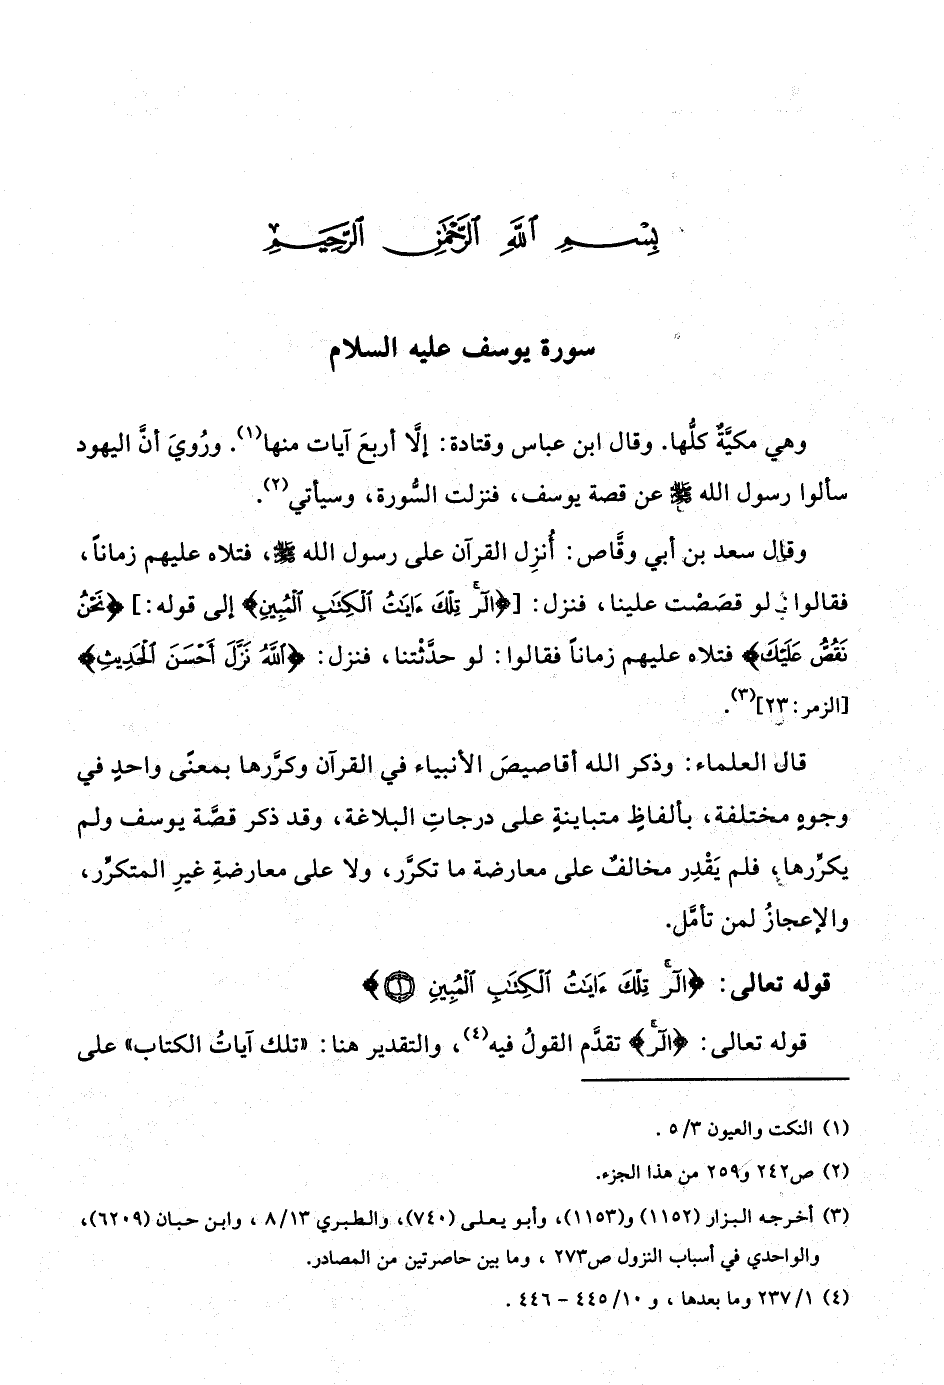 بِسْمِ ٱللَّهِ ٱلرَّحْمَٰنِ ٱلرَّحِيمِ
سورة يوسف عليه السلام
وهي مكيَّةٌ كلُّها. وقال ابن عباس وقتادة: إلَّا أربعَ آيات منها(١). ورُويَ أنَّ اليهود
سألوا رسول الله ﷺ عن قصة يوسف، فنزلت السُّورة، وسيأتي(٢).
وقال سعد بن أبي وقَّاص: أُنزِل القرآن على رسول الله ﷺ، فتلاه عليهم زماناً،
فقالوا: لو قصَصْت علينا، فنزل: [﴿الٓرۚ تِلْكَ ءَايَٰتُ ٱلْكِتَٰبِ ٱلْمُبِينِ﴾ إلى قوله:] ﴿نَحْنُ
نَقُصُّ عَلَيْكَ﴾ فتلاه عليهم زماناً فقالوا: لو حدَّثْتنا، فنزل: ﴿ٱللَّهُ نَزَّلَ أَحْسَنَ ٱلْحَدِيثِ﴾
[الزمر: ٢٣](٣).
قال العلماء: وذكر الله أقاصيصَ الأنبياء في القرآن وكرَّرها بمعنًى واحدٍ في
وجوهٍ مختلفة، بألفاظٍ متباينةٍ على درجاتِ البلاغة، وقد ذكر قصَّة يوسف ولم
يكرِّرها، فلم يَقْدِر مخالفٌ على معارضة ما تكرَّر، ولا على معارضةِ غيرِ المتكرِّر،
والإعجازُ لمن تأمَّل.
قوله تعالى: ﴿الٓرۚ تِلْكَ ءَايَٰتُ ٱلْكِتَٰبِ ٱلْمُبِينِ ۝١﴾
قوله تعالى: ﴿الٓرۚ﴾ تقدَّم القولُ فيه(٤)، والتقدير هنا: «تلك آياتُ الكتاب» على
(١) النكت والعيون ٥/٣ .
(٢) ص٢٤٢ و٢٥٩ من هذا الجزء.
(٣) أخرجه البزار (١١٥٢) و(١١٥٣)، وأبو يعلى (٧٤٠)، والطبري ٨/١٣ ، وابن حبان (٦٢٠٩)،
والواحدي في أسباب النزول ص٢٧٣ ، وما بين حاصرتين من المصادر.
(٤) ٢٣٧/١ وما بعدها ، و ٤٤٥/١٠ – ٤٤٦ .